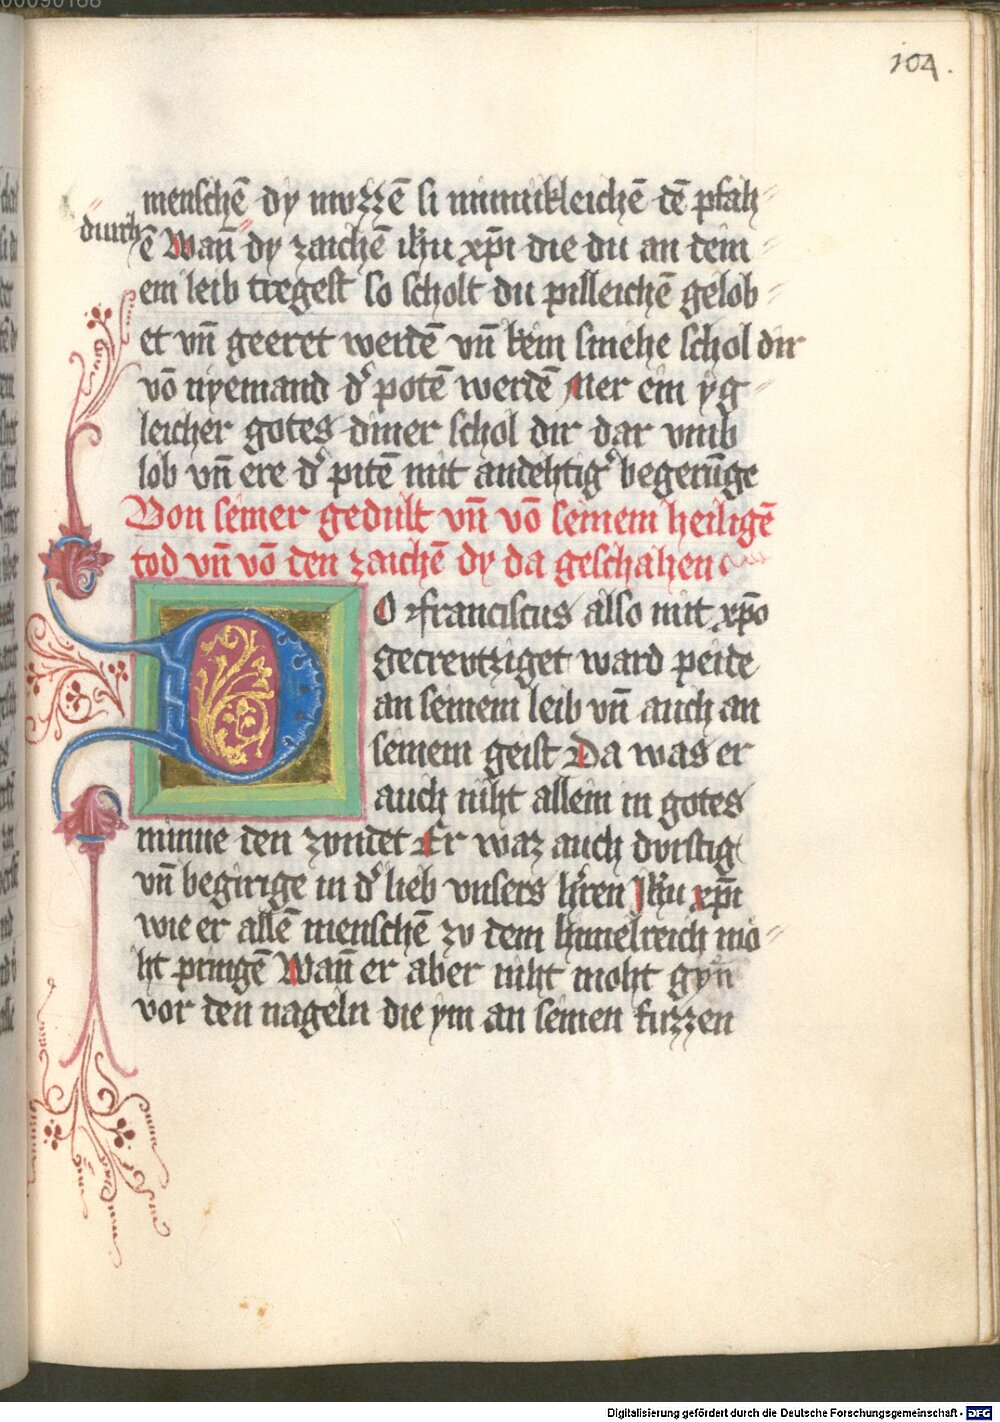 00090168
104.
menschē dy muzzē si mīnikleichē dē pfah⸗
durch
ē Wan̄ dy zaichē ih̄u xp̄i die du an dein
em leib tregest so scholt du pilleichē gelob⸗
et vn̄ geeret werdē vn̄ kein smehe schol dir
vō nyemand d' potē werdē Ner ein yg⸗
leicher gotes diner schol dir dar vmb
lob vn̄ ere d' pitē mit andehtig' begerūge
Von seiner gedult vn̄ vō seinem heiligē
tod vn̄ vō den zaichē dy da geschahen
DO franciscus also mit xp̄o
gecreutziget ward peide
an seinem leib vn̄ auch an
seinem geist Da was er
auch niht allein in gotes
minne den zvndet Er waz auch dvrstig
vn̄ begirige in d' lieb vnsers h'ren Ih̄u xp̄i
wie er allē menschē zv dem himelreich mo⸗
ht pringē Wan̄ er aber niht moht gyn̄
vor den nageln die ym an seinen fuzzen
Digitalisierung gefördert durch die Deutsche Forschungsgemeinschaft - DFG